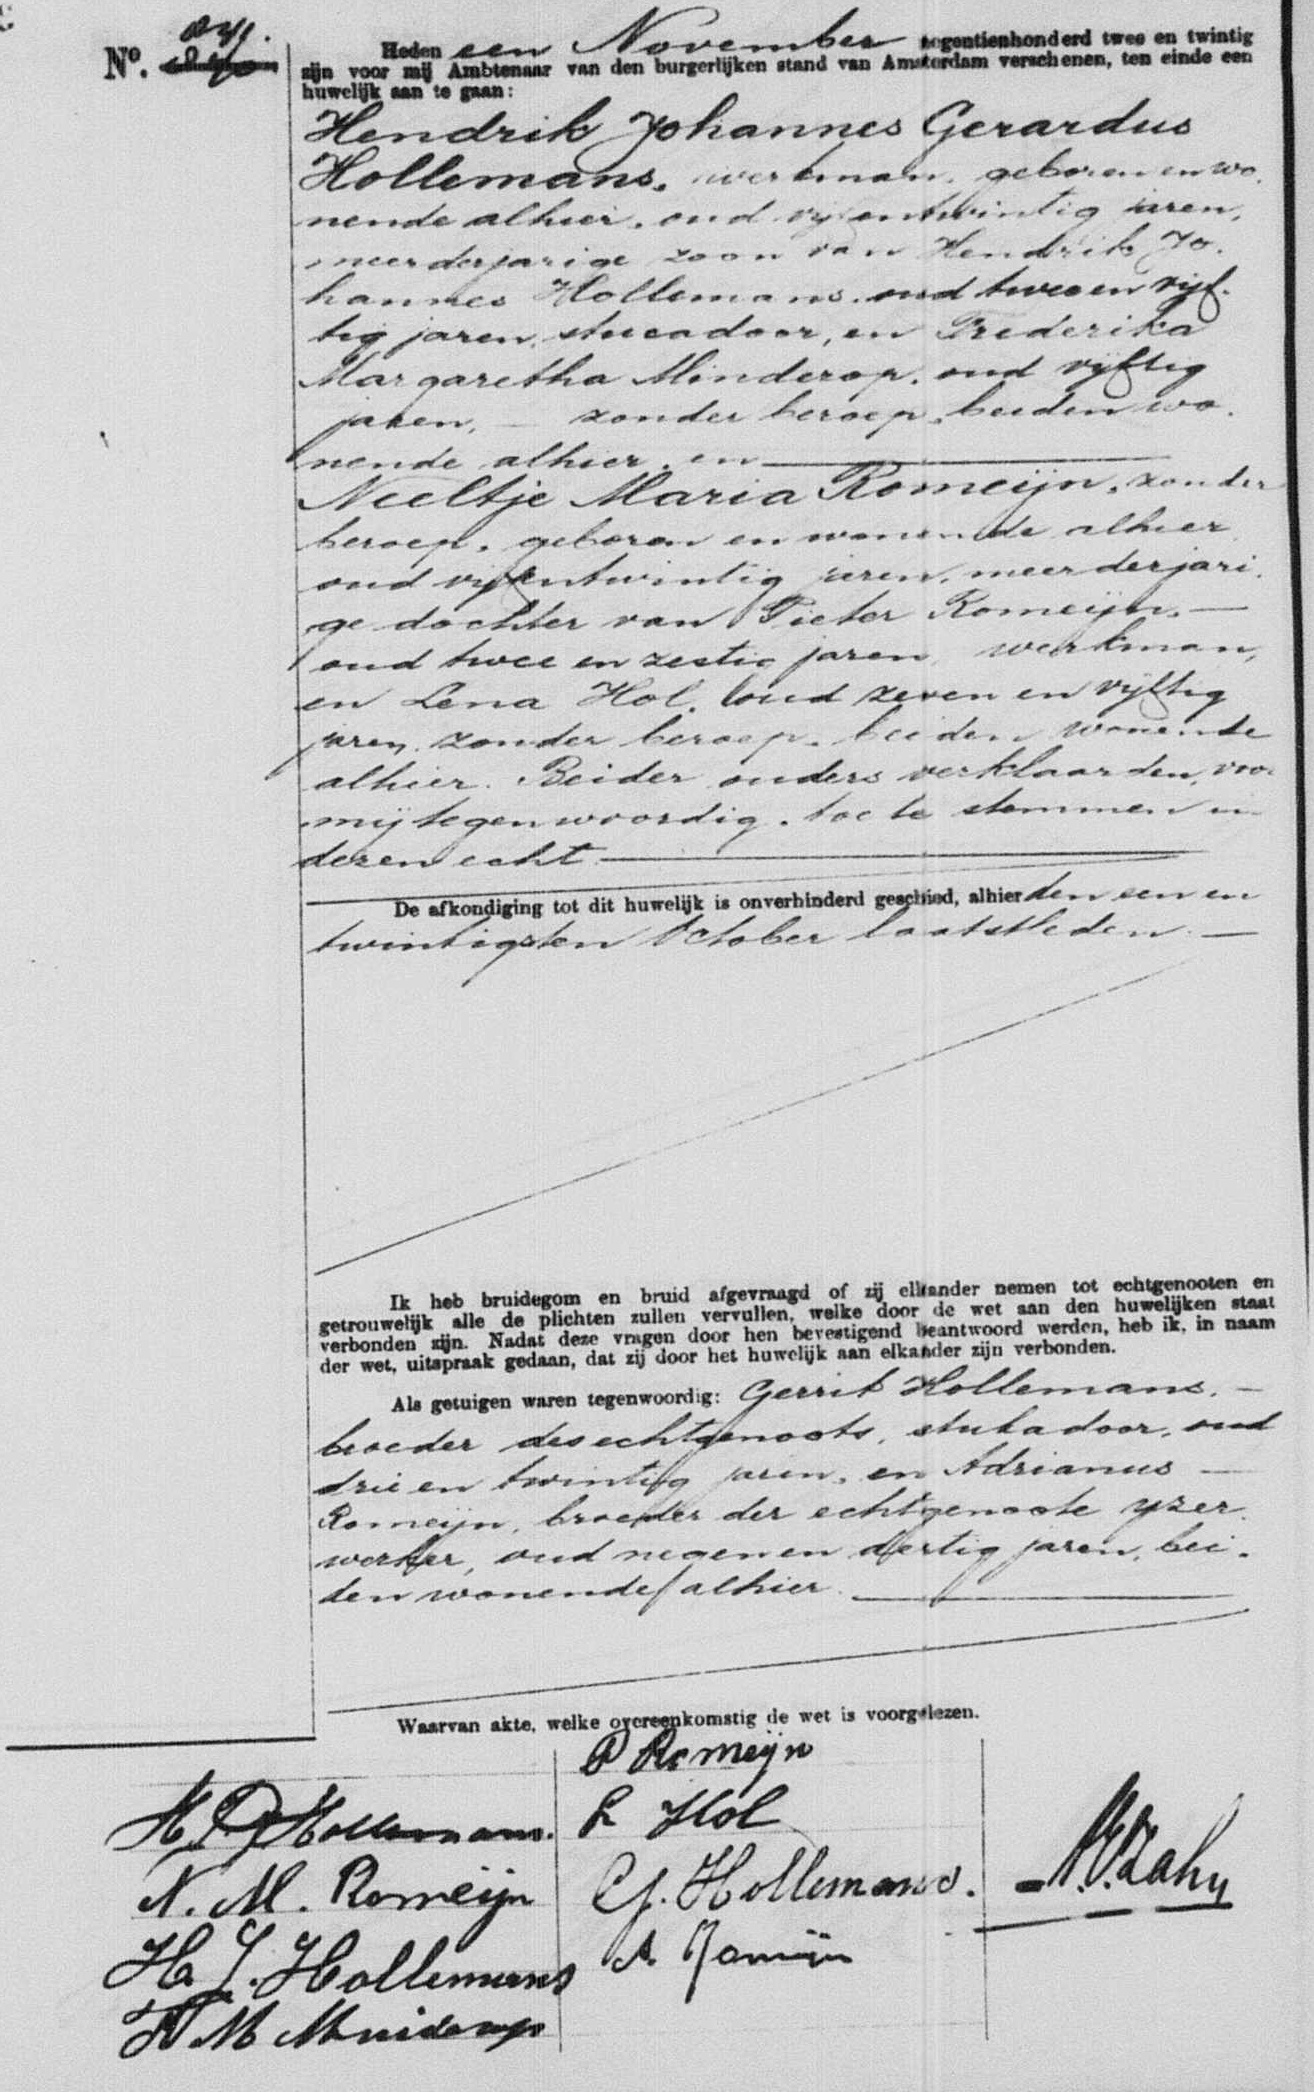 No.
Heden een November negentienhonderd twee en twintig
zijn voor mij Ambtenaar van den burgerlijken stand van Amsterdam verschenen, ten einde een
huwelijk aan te gaan:
Hendrik Johannes Gerardus
Hollemans, werkman, geboren en wo-
nende alhier, oud vijfentwintig jaren,
meerderjarige zoon van Hendrik Jo-
hannes Hollemans, oud twee en vijf-
tig jaren, stucadoor, en Frederika
Margaretha Minderop, oud vijftig
jaren, — zonder beroep, beiden wo-
nende alhier, en
Neeltje Maria Romeijn, zonder
beroep, geboren en wonende alhier,
oud vijfentwintig jaren, meerderjari-
ge dochter van Pieter Romeijn, —
oud twee en zestig jaren, werkman,
en Lena Hol, oud zeven en vijftig
jaren, zonder beroep, beiden wonende
alhier. Beider ouders verklaarden, voor
mij tegenwoordig, toe te stemmen in
dezen echt.
De afkondiging tot dit huwelijk is onverhinderd geschied, alhier den een en
twintigsten October laatstleden. —
Ik heb bruidegom en bruid afgevraagd of zij elkander nemen tot echtgenooten en
getrouwelijk alle de plichten zullen vervullen, welke door de wet aan den huwelijken staat
verbonden zijn. Nadat deze vragen door hen bevestigend beantwoord werden, heb ik, in naam
der wet, uitspraak gedaan, dat zij door het huwelijk aan elkander zijn verbonden.
Als getuigen waren tegenwoordig: Gerrit Hollemans, —
broeder des echtgenoots, stukadoor, oud
drie en twintig jaren, en Adrianus —
Romeijn, broeder der echtgenoote, yzer-
werker, oud negen en dertig jaren, bei-
den wonende alhier.
Waarvan akte, welke overeenkomstig de wet is voorgelezen.
H J G Hollemans.
N. M. Romeijn
H. J. Hollemans
F M Minderop
P Romeijn
L Hol
G. Hollemans.
A. Romeijn